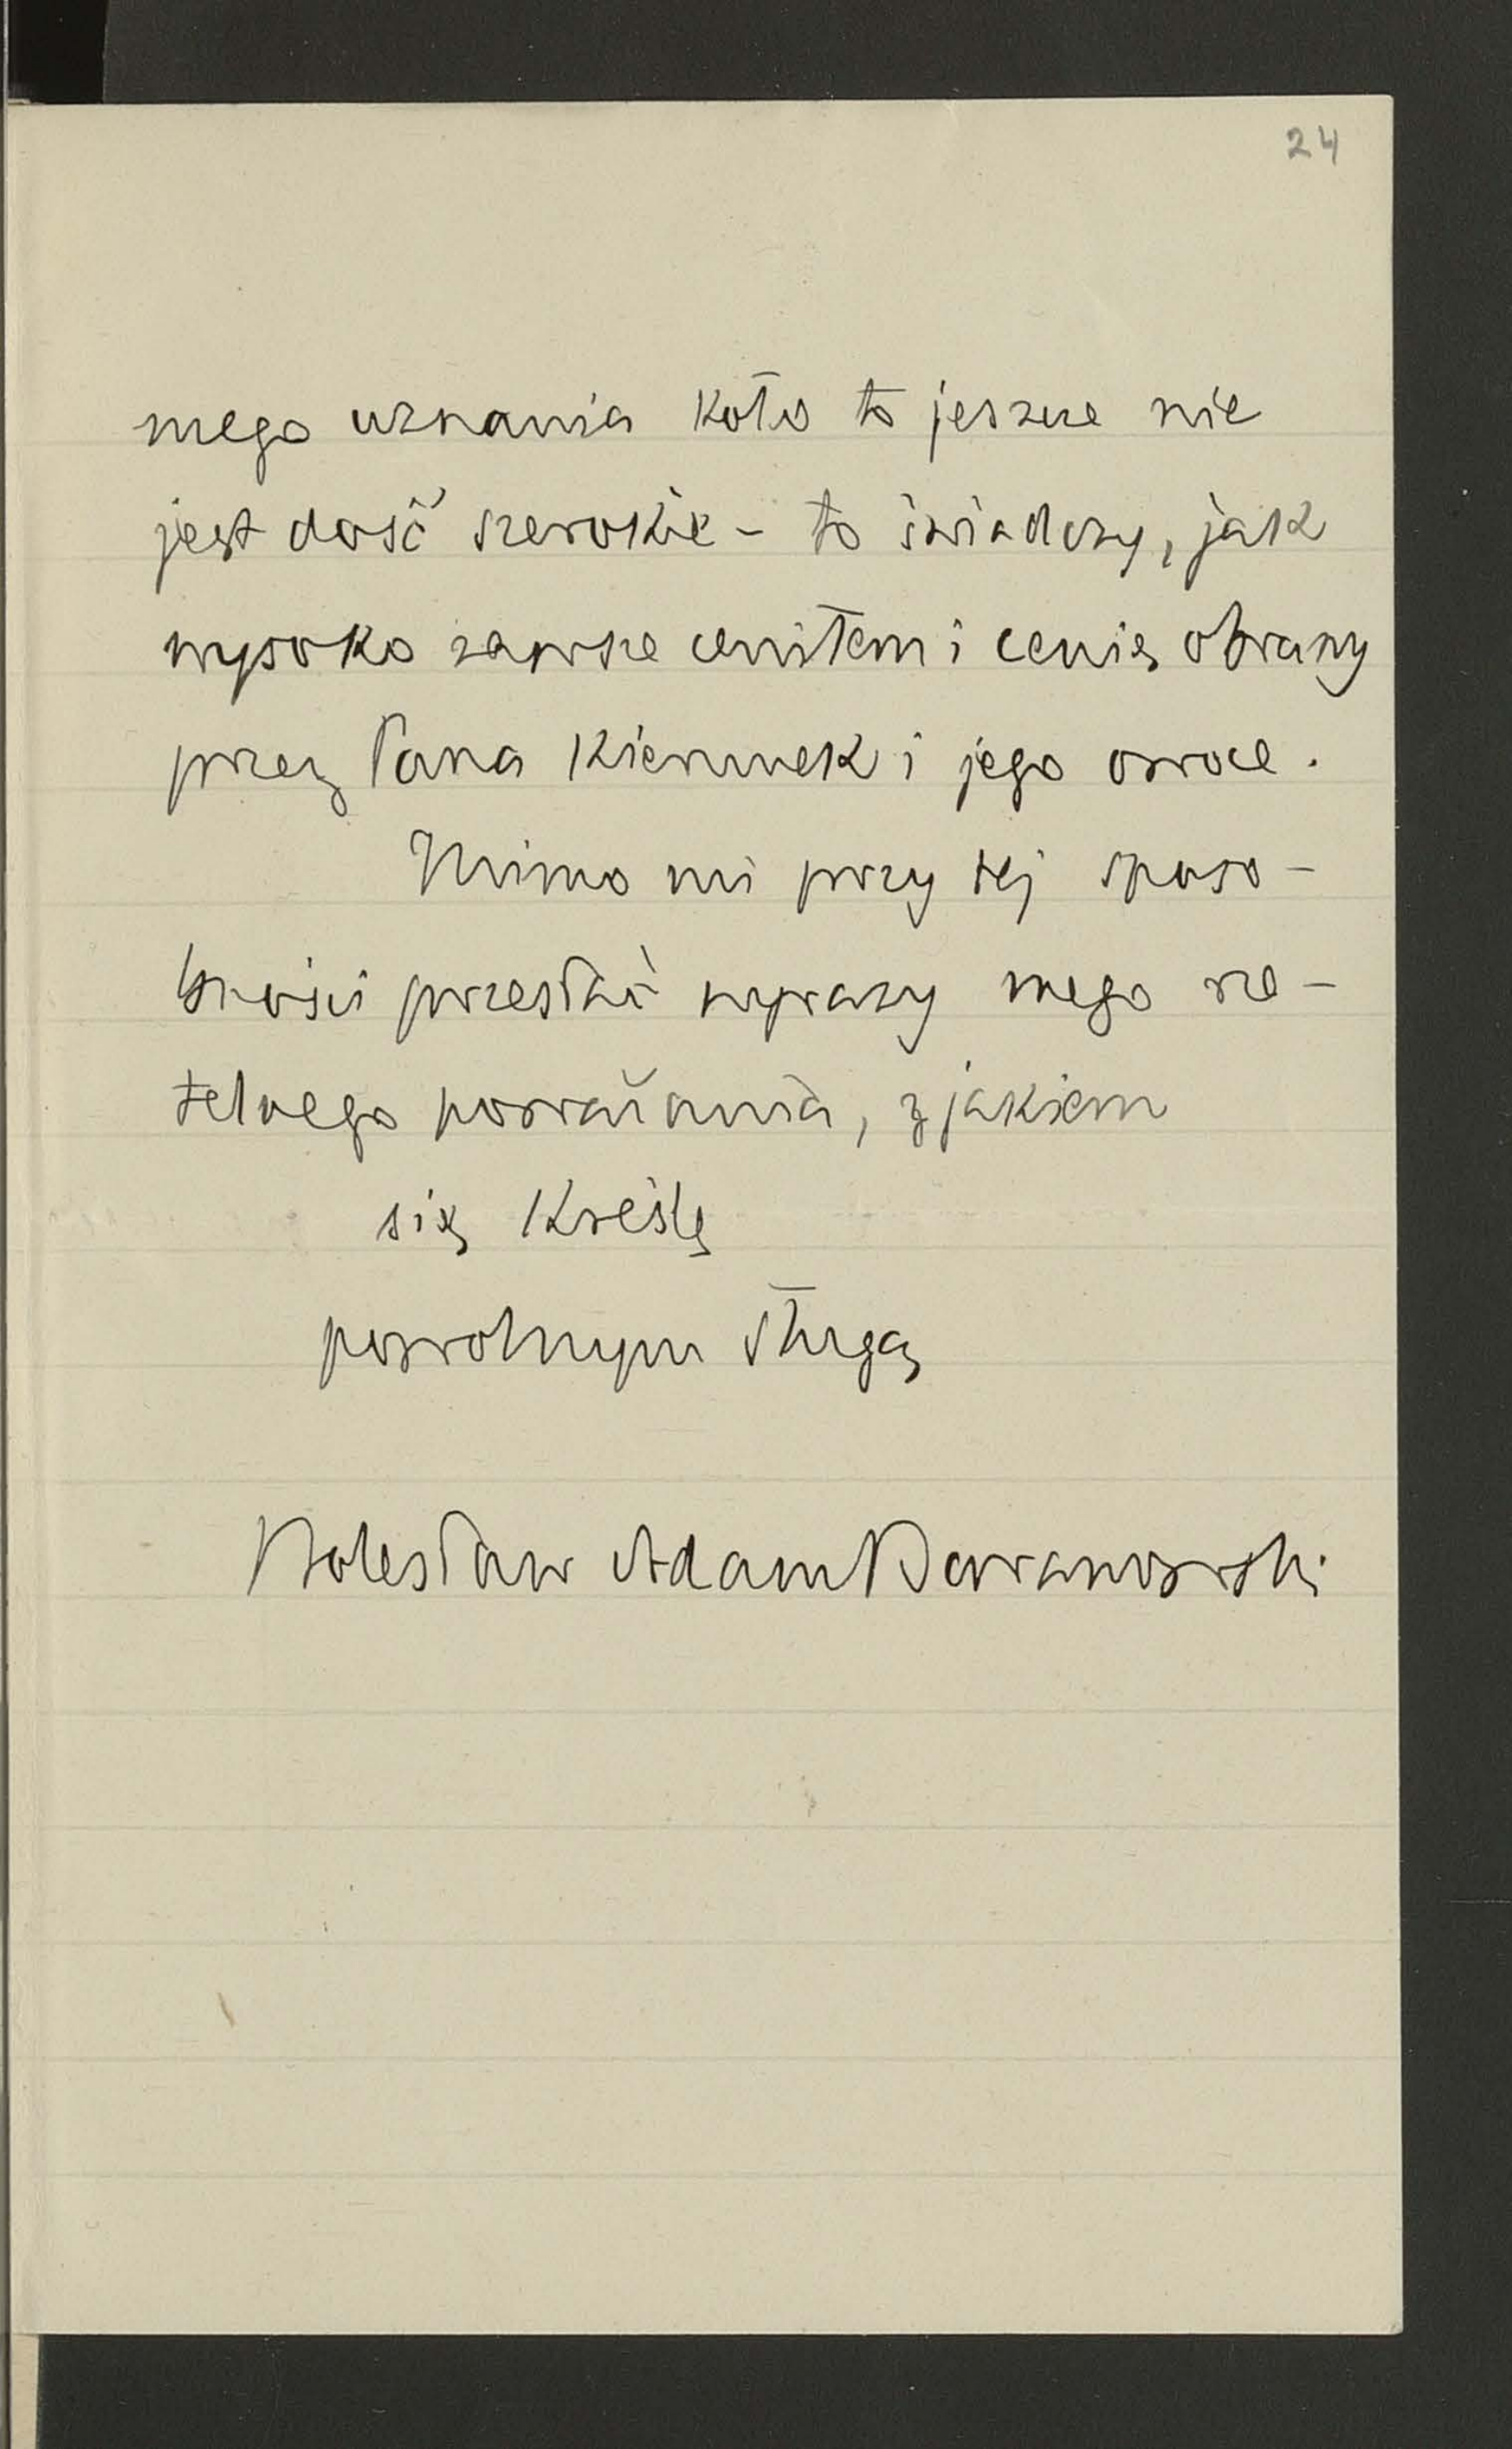 24
mego uznania koło to jeszcze nie
jest dość szerokie – to świadczy, jak
wysoko zawsze ceniłem i cenię obrany
przez Pana kierunek i jego owoce.
Miło mi przy tej sposo-
bności przesłać wyrazy mego rze-
telnego poważania, z jakiem
się kreślę
powolnym sługą
Bolesław Adam Baranowski